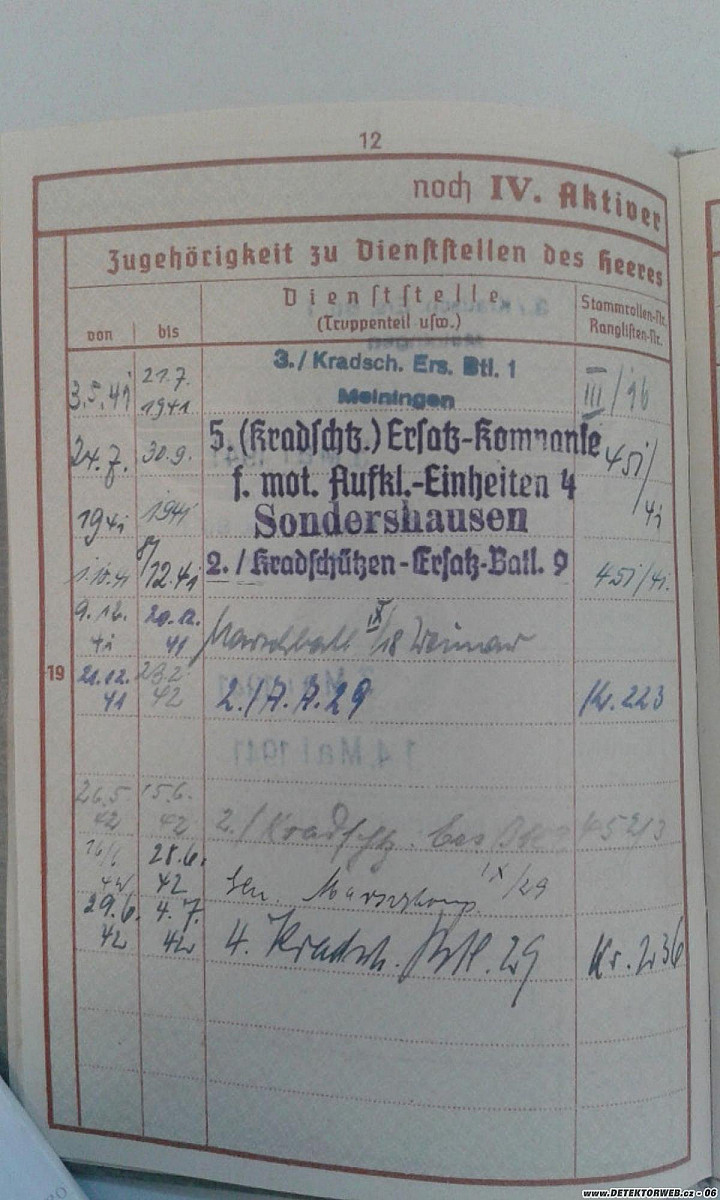 12
noch IV. Aktiver
Zugehörigkeit zu Dienststellen des Heeres
von bis
Dienststelle
(Truppenteil usw.)
Stammrollen-Nr.
Ranglisten-Nr.
3.5.41 21.7. 1941 3./Kradsch. Ers. Btl. 1 III/96
Meiningen
24.7. 30.9. 5. (Kradschtz.) Ersatz-Kompanie 451/
1941 1941 f. mot. Aufkl.-Einheiten 4 41
Sondershausen
1.10.41 8/12.41 2./Kradschützen-Ersatz-Batl. 9 451/41.
9.12. 20.12. Marschbatl IX/18 Weimar
41 41
19
21.12. 23.2. 2./A.A.29 Kr. 223
41 42
14. Mai 1941
26.5. 15.6. 2./Kradschtz.
42 42
28.6. Gen. Marschkomp. IX/29
42 42
29.6. 4.7. 4. Kradsch. Btl. 29 Kr. 236
42 42
www.DETEKTORWEB.cz - GG